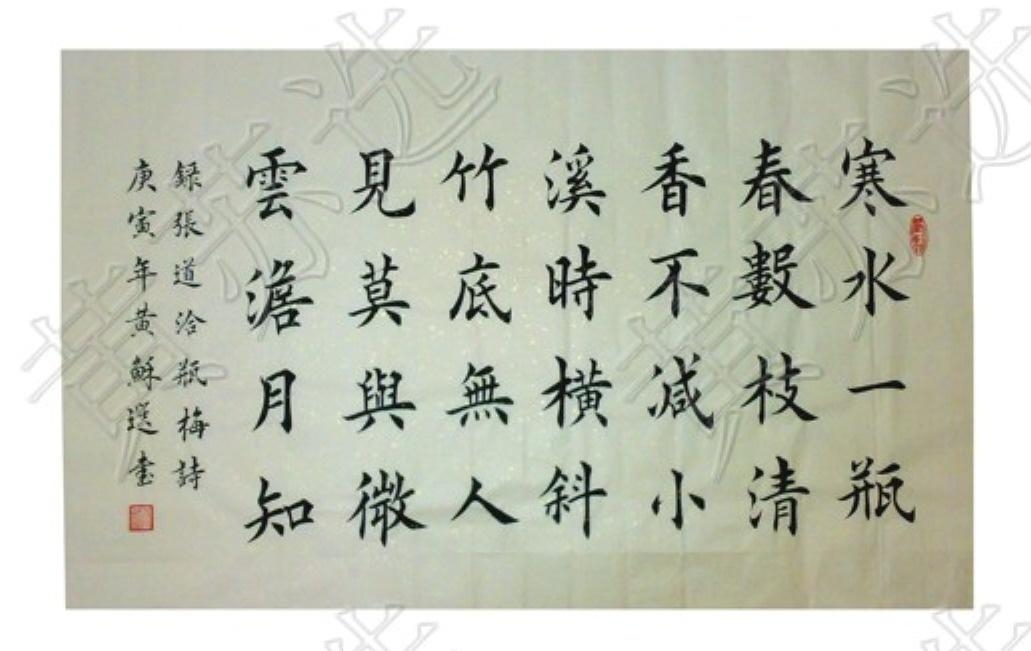 寒水一瓶
春數枝清
香不減小
溪時橫斜
竹底無人
見莫與微
雲澹月知
録張道洽瓶梅詩
庚寅年黃穌選書